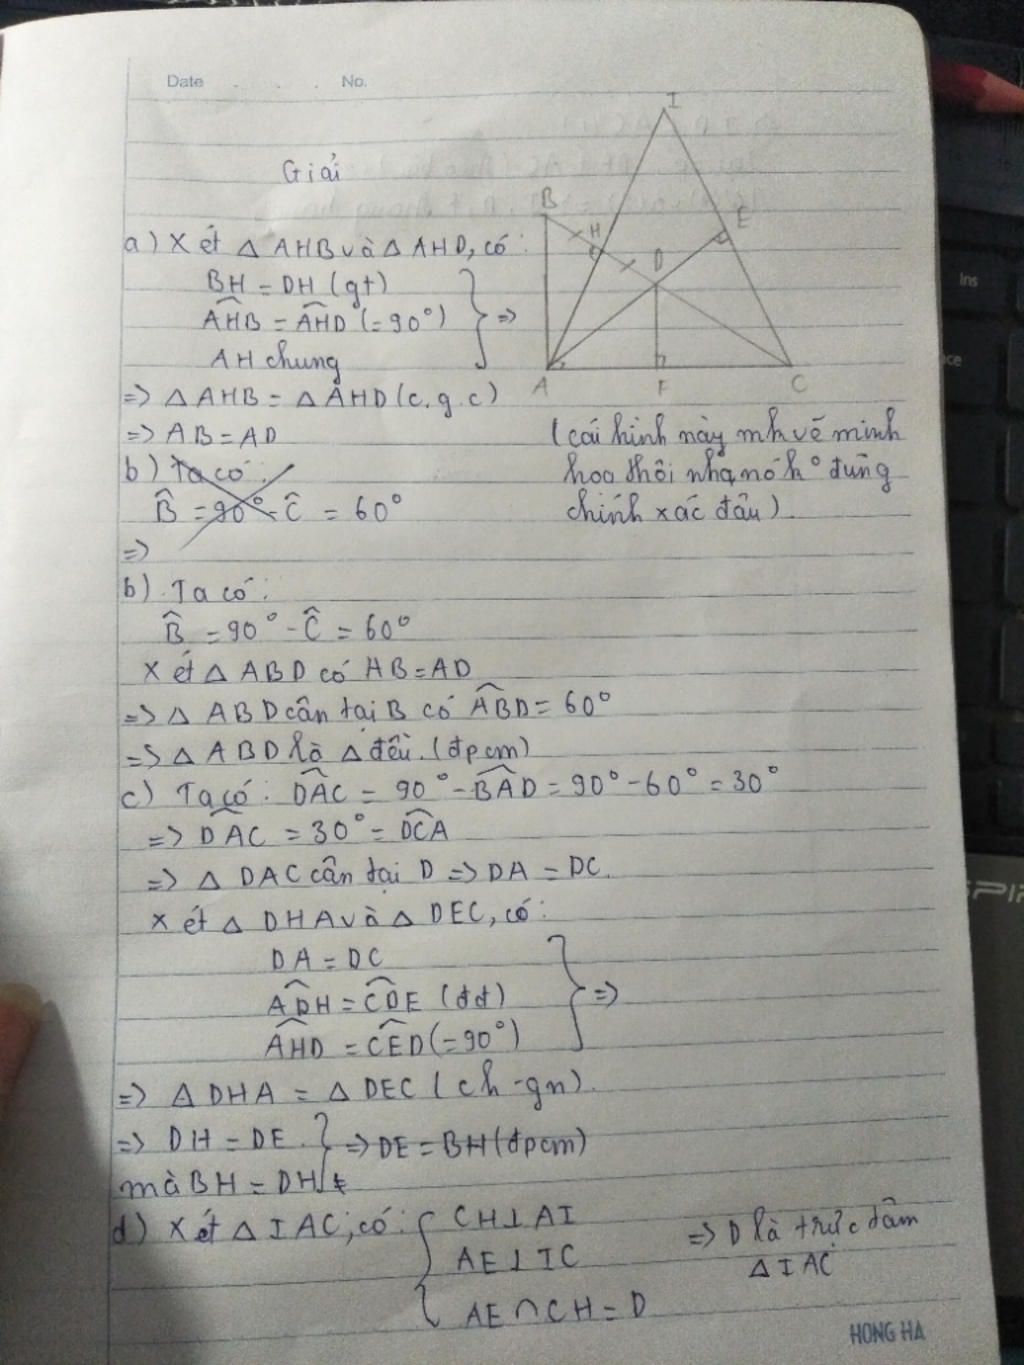 Date . . . No.
I
Giải
B
H
E
D
a) Xét △ AHB và △ AHD, có:
BH = DH (gt)
AHB = AHD (= 90°) =>
AH chung
A F C
=> △ AHB = △ AHD (c.g.c)
=> AB = AD
(cái hình này mk vẽ minh
hoạ thôi nha nó k° đúng
chính xác đâu)
b) Ta có:
B = 90° - C = 60°
=>
b). Ta có:
B = 90° - C = 60°
Xét △ ABD có AB = AD
=> △ ABD cân tại B có ABD = 60°
=> △ ABD là △ đều. (đpcm)
c) Ta có: DAC = 90° - BAD = 90° - 60° = 30°
=> DAC = 30° = DCA
=> △ DAC cân tại D => DA = DC.
Xét △ DHA và △ DEC, có:
DA = DC
ADH = CDE (đđ) =>
AHD = CED (= 90°)
=> △ DHA = △ DEC (ch - gn).
=> DH = DE. => DE = BH (đpcm)
mà BH = DH
d) Xét △ IAC, có: CH ⊥ AI => D là trực tâm
AE ⊥ IC △ IAC
AE ∩ CH = D
HONG HA